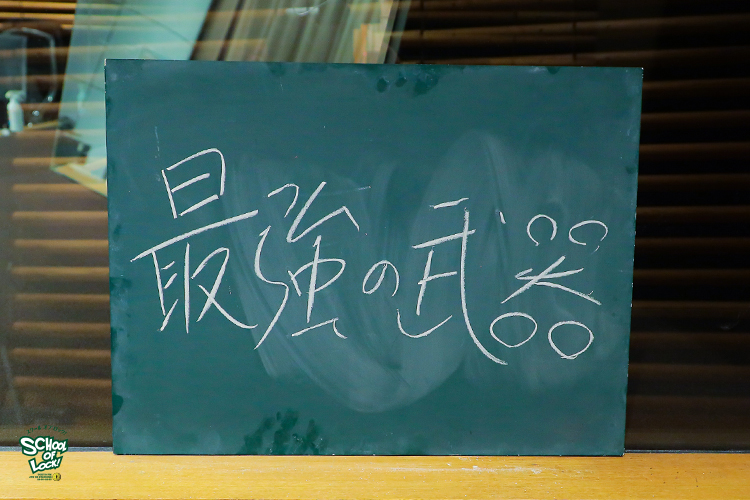 最強の武器
SCHOOL
OF
LOCK!